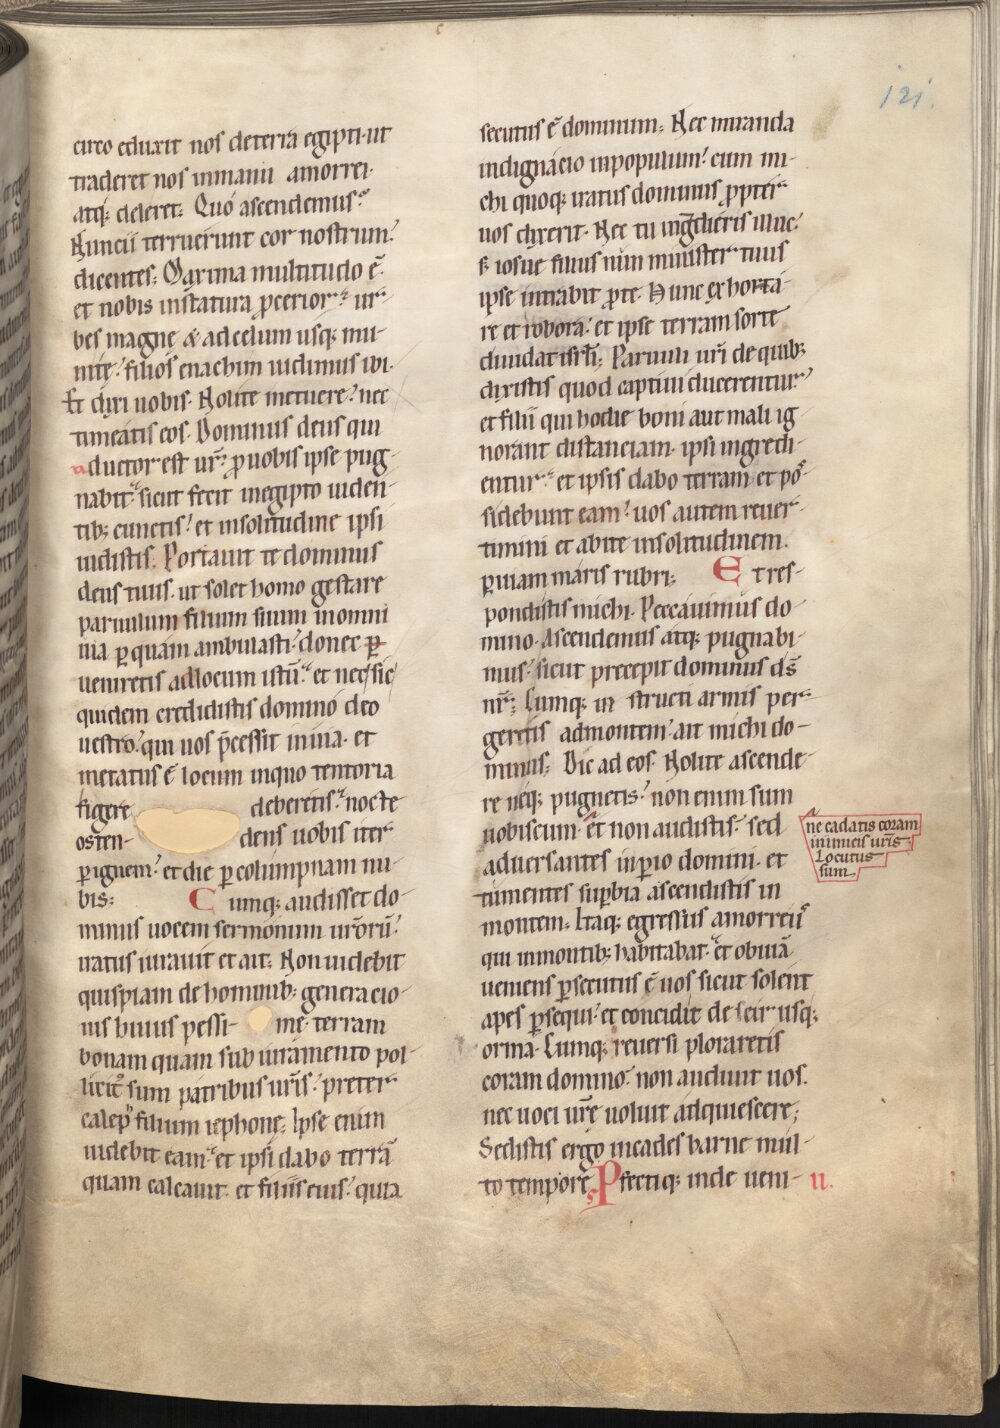 121.
circo eduxit nos deterra egipti. ut
traderet nos inmanu amorrei.
atq; deleret; Quo ascendemus?
Nuncii terruerunt cor nostrum?
dicentes; Maxima multitudo ē.
et nobis instatura ꝓcerior; ur-
bes magnę & adcelum usq; mu-
nitę? filios enachim uidimus ibi.
Et dixi uobis. Nolite metuere? nec
timeatis eos. Dominus deus qui
ductor est ur̄? ꝓuobis ipse pug-
nabit? sicut fecit inegipto uiden-
tib; cunctis? et insolitudine ipsi
uidistis. Portauit te dominus
deus tuus. ut solet homo gestare
paruulum filium suum inomni
uia ꝑquam ambulasti? donec ꝑ
ueniretis adlocum istū? et nec sic
quidem credidistis domino deo
uestro? qui uos p̄cessit inuia. et
metatus ē locum inquo tentoria
figere deberetis? nocte
osten- dens uobis iter
ꝑignem? et die ꝑcolumpnam nu-
bis; Cumq; audisset do-
minus uocem sermonum ur̄orū?
iratus iurauit et ait; Non uidebit
quispiam de hominib; generacio-
nis huius pessi- me. terram
bonam quam sub iuramento pol-
licit᷒ sum patribus ur̄is? preter
caleph filium iephone; Ipse enim
uidebit eam? et ipsi dabo terrā
quam calcauit. et filiis eius? quia
secutus ē dominum; Nec miranda
indignacio inpopulum? cum mi-
chi quoq; iratus dominus ꝓpter
uos dixerit. Nec tu ingredieris illuc?
s; iosue filius nun minister tuus
ipse intrabit ꝓte. Hunc exhorta-
re et robora? et ipse terram sorte
diuidat isrl̄i; Paruuli ur̄i de quib;
dixistis quod captiui ducerentur?
et filii qui hodie boni aut mali ig
norant distanciam. ipsi ingredi-
entur? et ipsis dabo terram et pos-
sidebunt eam? uos autem reuer-
timini et abite insolitudinem.
ꝑuiam maris rubri; Et res-
pondistis michi. Peccauimus do-
mino. Ascendemus atq; pugnabi-
mus? sicut precepit dominus ds̄
nr̄; Cumq; in structi armis per-
geretis admontem? ait michi do-
minus; Dic ad eos. Nolite ascende-
re neq; pugnetis? non enim sum
uobiscum? et non audistis? sed
ne cadatis coram
inimicis ur̄is.
Locutus
sum.
aduersantes inꝑio domini. et
tumentes suꝑbia ascendistis in
montem; Itaq; egressus amorreus
qui inmontib; habitabat. et obuiā
ueniens ꝑsecutus ē uos sicut solent
apes ꝑsequi? et concidit de seir usq;
orma. Cumq; reuersi ploraretis
coram domino? non audiuit uos.
nec uoci ur̄e uoluit adquiescere;
Sedistis ergo incades barne mul-
to tempore Pfectiq; inde ueni- u.